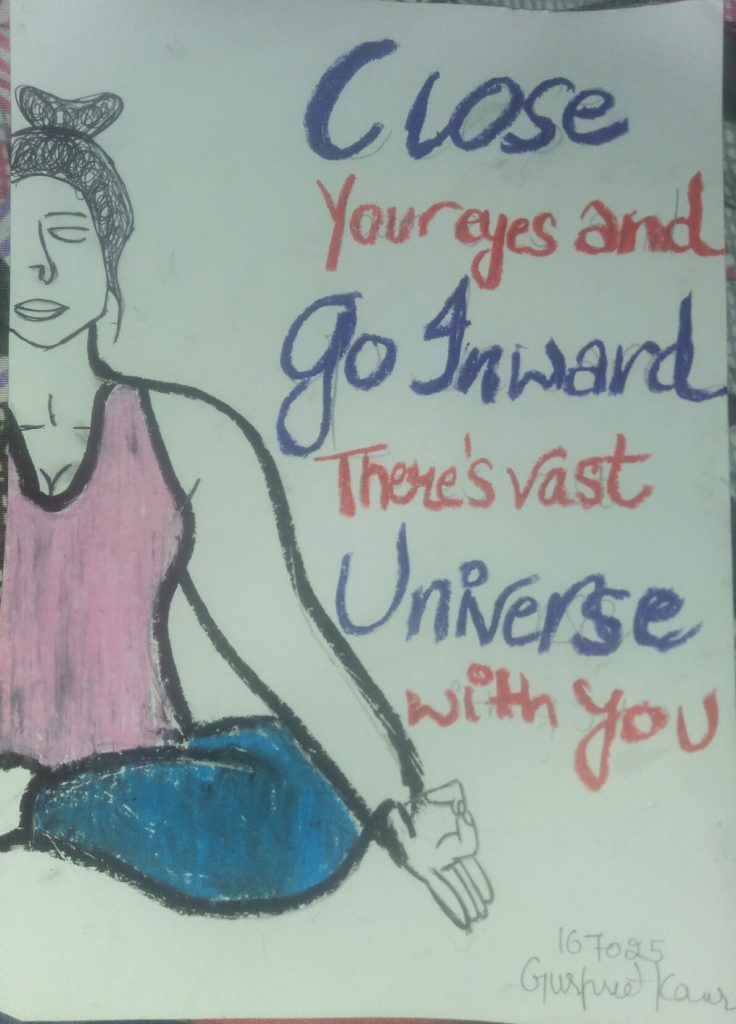 Close
Your eyes and
go Inward
There's vast
Universe
with you
167025
Gurpreet Kaur